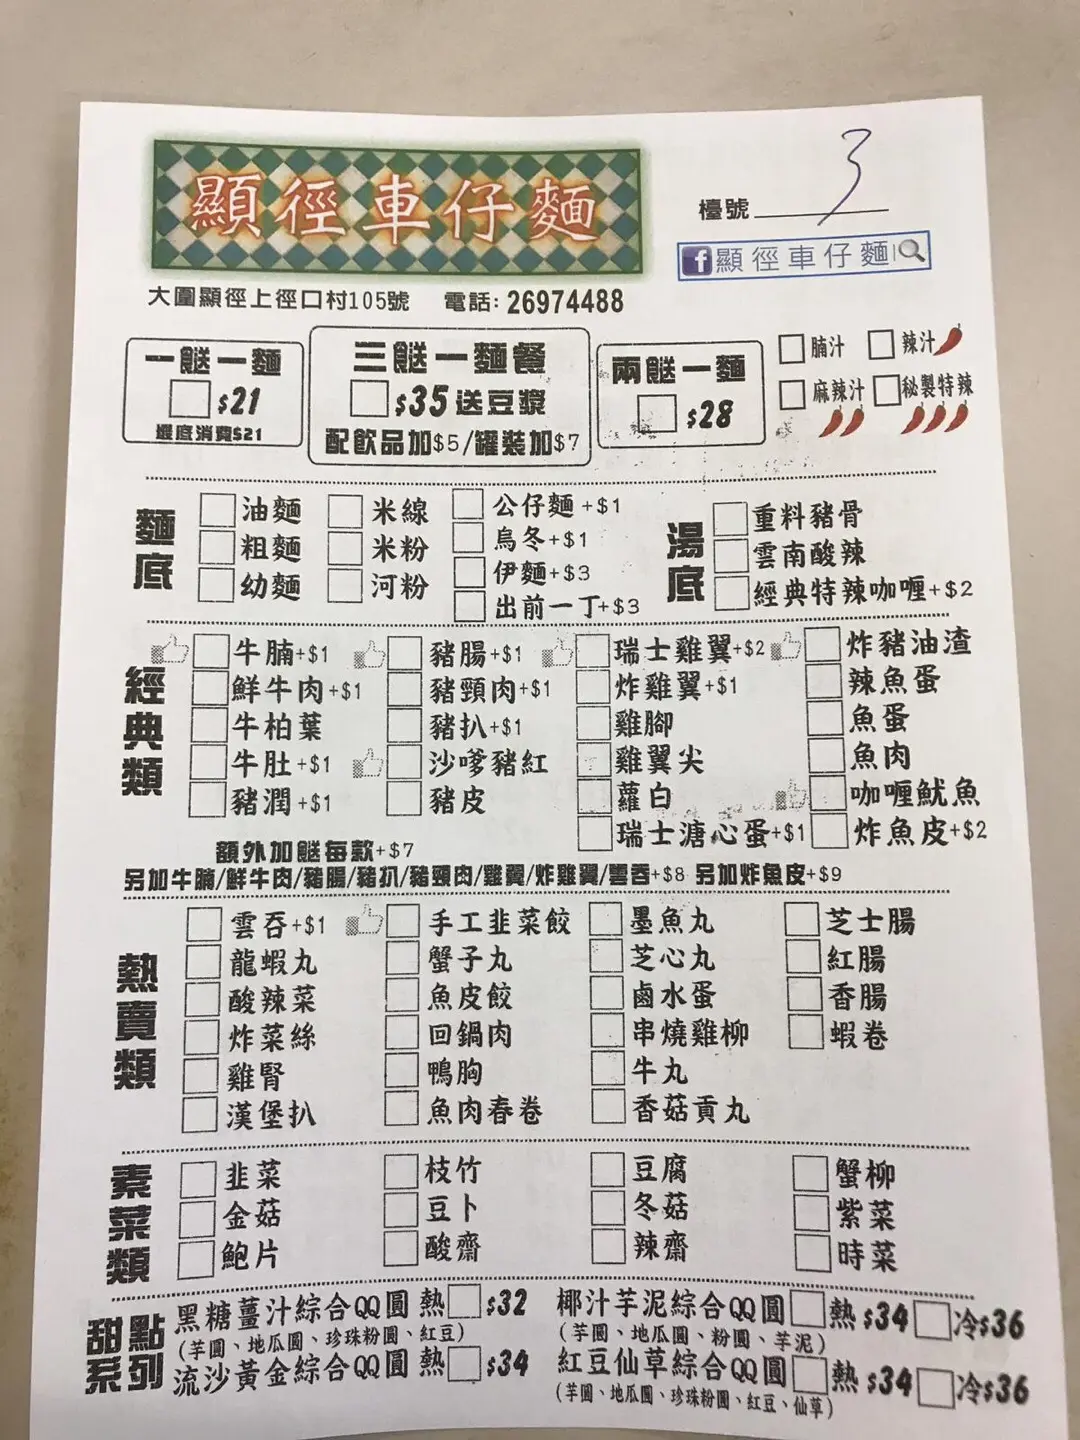 顯徑車仔麵
檯號 3
顯徑車仔麵
大圍顯徑上徑口村105號 電話: 26974488
一餸一麵
$21
最底消費$21
三餸一麵餐
$35送豆漿
配飲品加$5/罐裝加$7
兩餸一麵
$28
腩汁 辣汁
麻辣汁 秘製特辣
麵底
油麵 米線 公仔麵+$1
粗麵 米粉 烏冬+$1
幼麵 河粉 伊麵+$3
出前一丁+$3
湯底
重料豬骨
雲南酸辣
經典特辣咖喱+$2
經典類
牛腩+$1 豬腸+$1 瑞士雞翼+$2 炸豬油渣
鮮牛肉+$1 豬頸肉+$1 炸雞翼+$1 辣魚蛋
牛柏葉 豬扒+$1 雞腳 魚蛋
牛肚+$1 沙嗲豬紅 雞翼尖 魚肉
豬潤+$1 豬皮 蘿白 咖喱魷魚
瑞士溏心蛋+$1 炸魚皮+$2
額外加餸每款+$7
另加牛腩/鮮牛肉/豬腸/豬扒/豬頸肉/雞翼/炸雞翼/雲吞+$8 另加炸魚皮+$9
熱賣類
雲吞+$1 手工韭菜餃 墨魚丸 芝士腸
龍蝦丸 蟹子丸 芝心丸 紅腸
酸辣菜 魚皮餃 鹵水蛋 香腸
炸菜絲 回鍋肉 串燒雞柳 蝦卷
雞腎 鴨胸 牛丸
漢堡扒 魚肉春卷 香菇貢丸
素菜類
韭菜 枝竹 豆腐 蟹柳
金菇 豆卜 冬菇 紫菜
鮑片 酸齋 辣齋 時菜
甜點系列
黑糖薑汁綜合QQ圓 熱 $32 椰汁芋泥綜合QQ圓 熱 $34 冷$36
(芋圓、地瓜圓、珍珠粉圓、紅豆) (芋圓、地瓜圓、粉圓、芋泥)
流沙黃金綜合QQ圓 熱 $34 紅豆仙草綜合QQ圓 熱 $34 冷$36
(芋圓、地瓜圓、珍珠粉圓、紅豆、仙草)